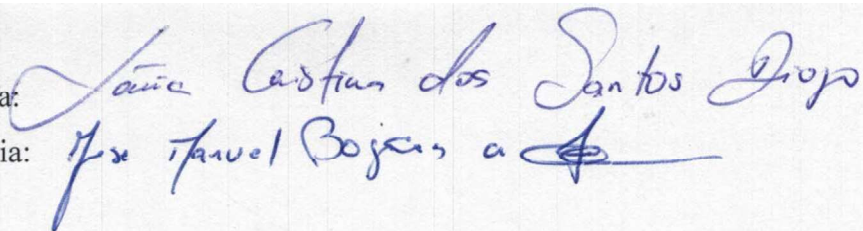 a: Tânia Cristina dos Santos Diogo
ia: José Manuel